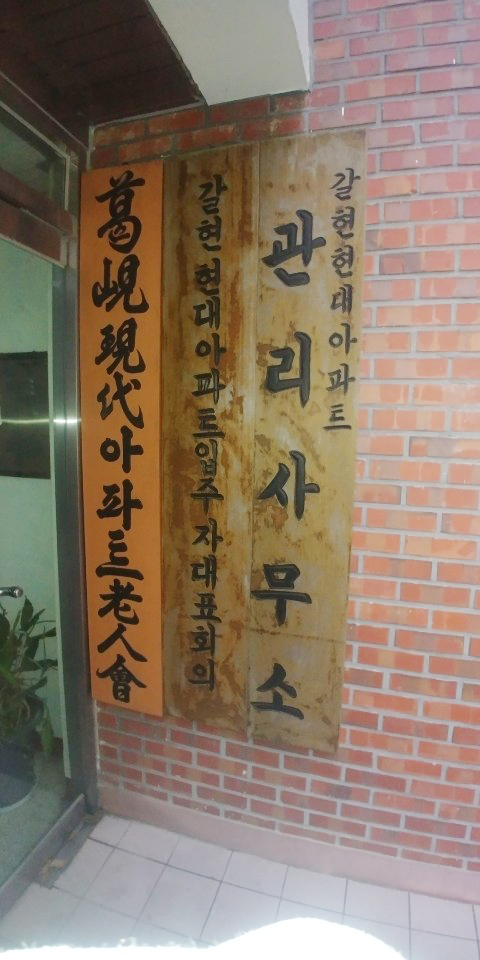 갈현현대아파트
관리사무소
갈현현대아파트입주자대표회의
葛峴現代아파트老人會